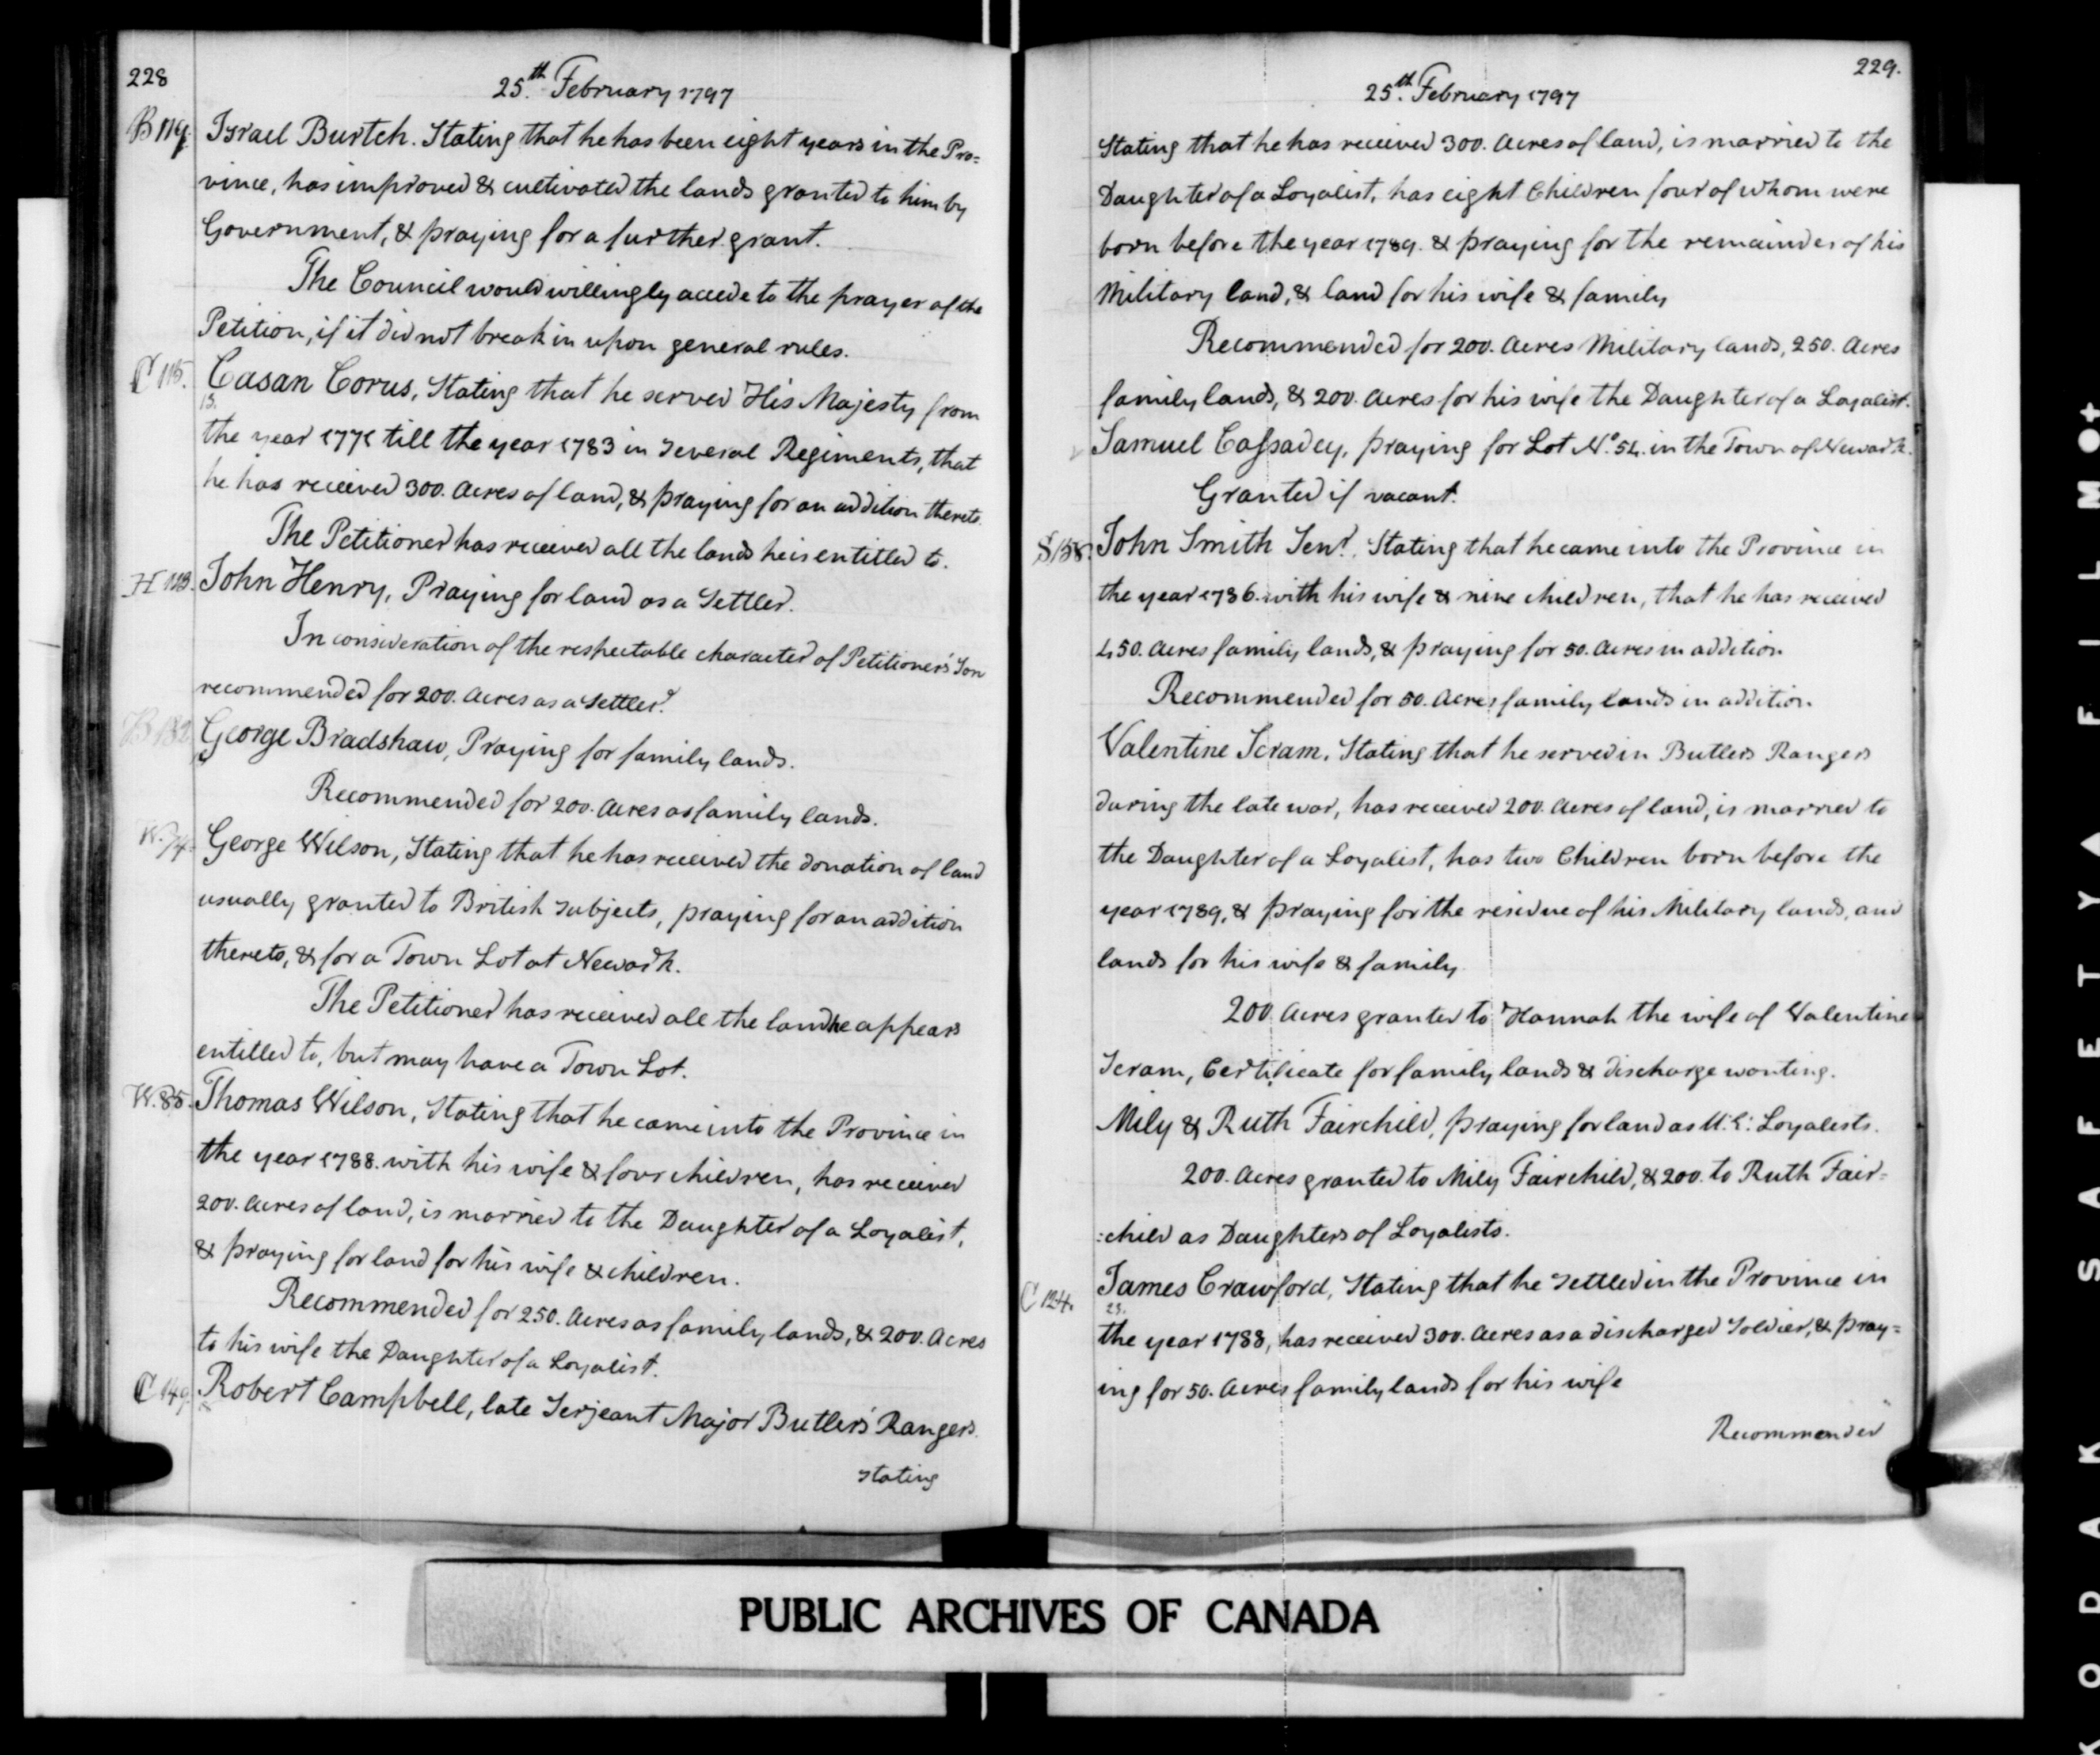 228
25th February 1797
B 119. Israel Burtch. Stating that he has been eight years in the Pro=
vince, has improved & cultivated the lands granted to him by
Government, & praying for a further grant.
The Council would willingly accede to the prayer of the
Petition, if it did not break in upon general rules.
C 115. Casan Corus, Stating that he served His Majesty from
the year 1771 till the year 1783 in several Regiments, that
he has received 300. Acres of land, & praying for an addition thereto.
The Petitioner has received all the lands he is entitled to.
H 113. John Henry, Praying for land as a Settler.
In consideration of the respectable character of Petitioner's Son
recommended for 200. Acres as a Settler.
B 132 George Bradshaw, Praying for family lands.
Recommended for 200. Acres as family lands.
W. 74. George Wilson, Stating that he has received the donation of land
usually granted to British subjects, praying for an addition
thereto, & for a Town Lot at Newark.
The Petitioner has received all the land he appears
entitled to, but may have a Town Lot.
W. 85. Thomas Wilson, Stating that he came into the Province in
the year 1788. with his wife & four children, has received
200. Acres of land, is married to the Daughter of a Loyalist,
& praying for land for his wife & children.
Recommended for 250. Acres as family lands, & 200. Acres
to his wife the Daughter of a Loyalist.
C 149. Robert Campbell, late Serjeant Major Butler's Rangers.
stating
229.
25th February 1797
Stating that he has received 300. Acres of land, is married to the
Daughter of a Loyalist, has eight Children four of whom were
born before the year 1789. & praying for the remainder of his
Military land, & land for his wife & family
Recommended for 200. Acres Military lands, 250. Acres
family lands, & 200. Acres for his wife the Daughter of a Loyalist.
Samuel Cassadey, praying for Lot No. 54. in the Town of Newark.
Granted if vacant.
S 138. John Smith Senr. Stating that he came into the Province in
the year 1786. with his wife & nine children, that he has received
450. Acres family lands, & praying for 50. Acres in addition
Recommended for 50. Acres family lands in addition.
Valentine Scram. Stating that he served in Butlers Rangers
during the late war, has received 200. Acres of land, is married to
the Daughter of a Loyalist, has two Children born before the
year 1789, & praying for the residue of his Military lands, and
lands for his wife & family
200 Acres granted to Hannah the wife of Valentine
Scram, Certificate for family lands & discharge wanting.
Mily & Ruth Fairchild, praying for land as U: E: Loyalists.
200. Acres granted to Mily Fairchild, & 200. to Ruth Fair=
:child as Daughters of Loyalists.
C 124. James Crawford, Stating that he settled in the Province in
23.
the year 1788, has received 300. Acres as a discharged Soldier, & pray=
ing for 50. Acres family lands for his wife
Recommended
PUBLIC ARCHIVES OF CANADA
KODAK SAFETY FILM